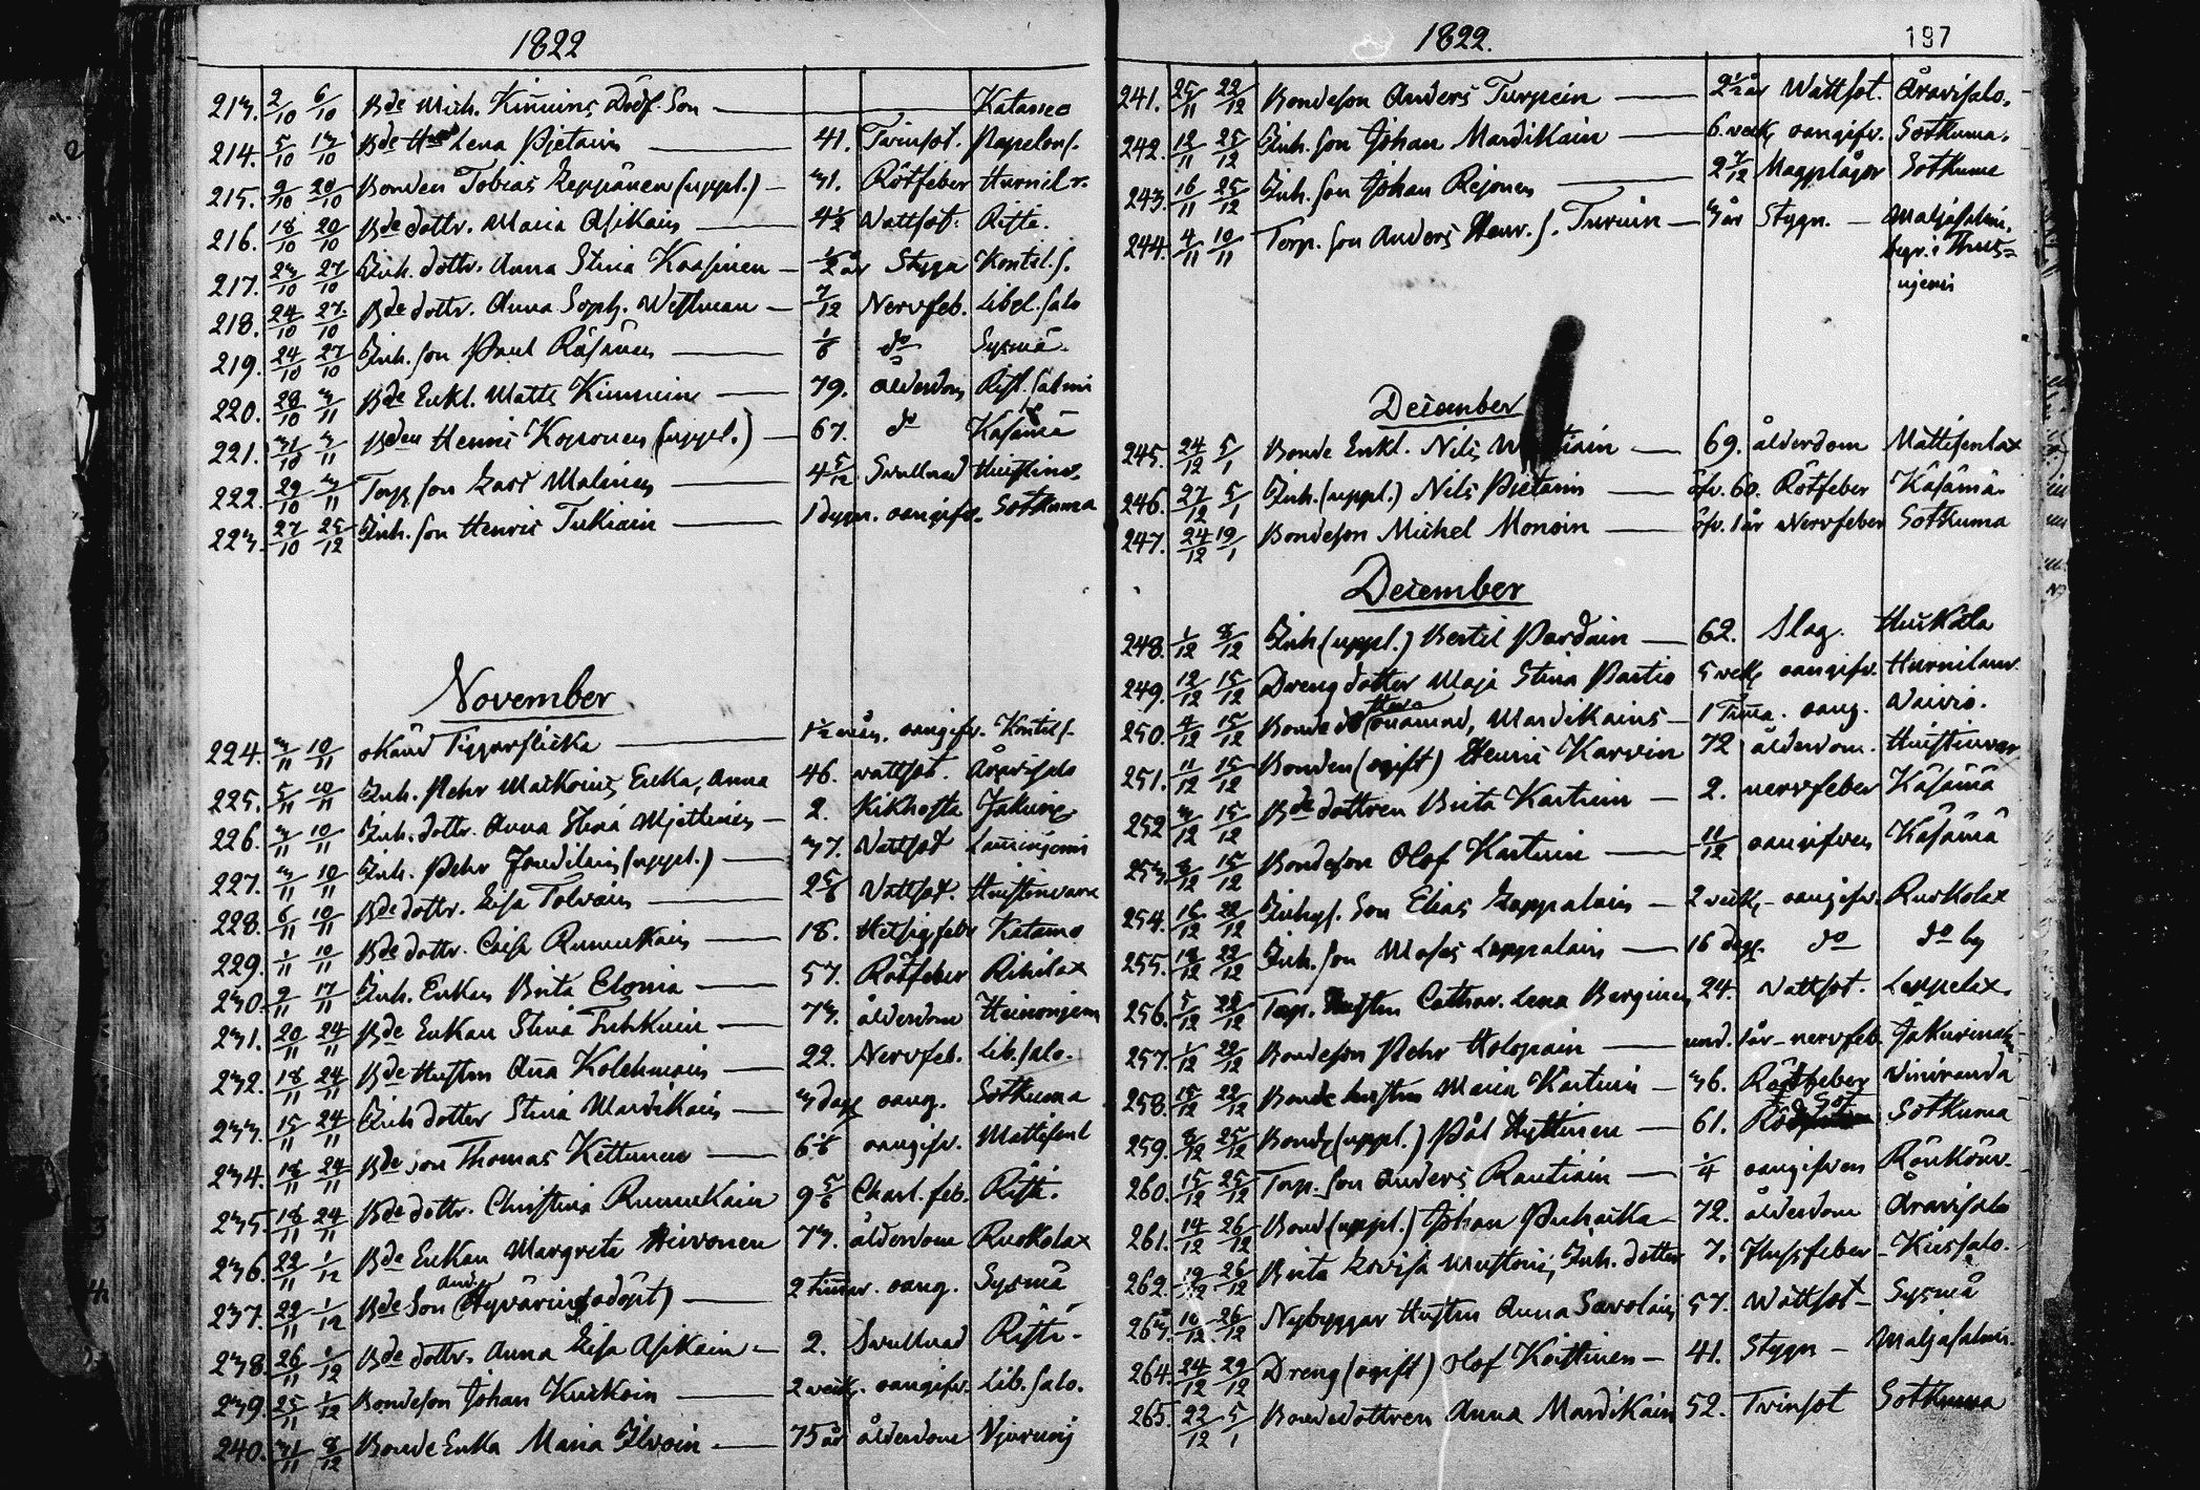 1822
213. 2/10 6/10 Bde Mich. Kinnuins Dödf. Son — Katamo
214. 5/10 13/10 Bde Lena Pjetaris — 41. Tvinsot.
215. 9/10 20/10 Bonden Tobias Leppänen (uppl.) — 31. Rötfeber Hurnil
216. 18/10 20/10 Bde dottr. Maria Asikain — 4½ Wattsot. Riste.
217. 23/10 27/10 Inh. dottr. Anna Stina Kaasinen — ½ år Stygn Kontil.s.
218. 24/10 27/10 Bde dottr. Anna Soph. Westman — 7/12 Nervfeb. Libel.salo
219. 24/10 27/10 Inh. son Paul Räsänen — do Sysmä.
220. 28/10 3/11 Bde Enkl. Matts Kinnuin — 79. ålderdom Rist.salmi
221. 31/10 3/11 Bden Henric Koponen (uppl.) — 67. do Käsämä
222. 29/10 3/11 Torp. son Lars Malinen — 4 5/12 Svullnad Huistinv.
223. 27/10 25/12 Inh. son Henric Tukiain — 1 dygn. oangifv. Sotkuma
November
224. 3/11 10/11 okänd Tiggarflicka — 1½ mån. oangifv. Kontil.s.
225. 5/11 10/11 Inh. Pehr Enka, Anna 46. wattsot. Åravisalo
226. 3/11 10/11 Inh. dottr. Anna Stina — 2. Kikhosta
227. 3/11 10/11 Inh. Pehr (uppl.) — 37. Vattsot
228. 6/11 10/11 Bde dottr. Lisa Tolvain — 2 5/6 Vattsot. Huistinvara
229. 1/11 10/11 Bde dottr. Caisa Runukain — 18. Hetsigfeb Katamo
230. 9/11 17/11 Inh. Enkan Brita Eloria — 53. Rötfeber Rihilax
231. 20/11 24/11 Bde Enkan Stina — 73. ålderdom Heinonjem
232. 18/11 24/11 Bde Hustrn Aña Kolehmain — 22. Nervfeb. Lib.salo.
233. 15/11 24/11 Inh dotter Stina Mardikain — 3 dag oang. Sotkuma
234. 18/11 24/11 Bde son Thomas Kettunen — oangifv. Mattisenl
235. 18/11 24/11 Bde dottr. Christina Runukain 9 5/6 Charl. feb. Risti.
236. 22/11 1/12 Bde Enkan Margreta Hirvonen 73. ålderdom Ruokolax
237. 22/11 1/12 Bde Son And. (Hyvärin, odöpt) — 2 timar. oang. Sysmä
238. 26/11 1/12 Bde dottr. Anna Lisa Asikain — 2. Svullnad Risti-
239. 25/11 1/12 Bondeson Johan Kurkoin — 2 veck. oangifv. Lib.salo.
240. 8/12 Bonde Enka Maria Ilvoin — 75 år ålderdom
1822.
197
241. 25/11 22/12 Bondeson Anders Turpein — 2½ år Wattsot. Åravisalo.
242. 12/11 25/12 Inh. son Johan Mardikain — 6. veck oangifv. Sotkuma.
243. 16/11 25/12 Inh. son Johan Rejonen — 2 7/12 Magplågor Sotkuma
244. 4/11 10/11 Torp. son Anders Henr. s. Turuin — 3 år Stygn. — Maljasalmi,
begr. i Thus=
njemi
December
245. 24/12 5/1 Bonde Enkl. Nils — 69. ålderdom Mattisenlax
246. 27/12 5/1 Inh. (uppl.) Nils Pjetarin — öfv. 60. Rötfeber Käsämä.
247. 24/12 19/1 Bondeson Michel Monoin — öfv. 1 år Nervfeber Sotkuma
December
248. 1/12 8/12 Inh (uppl.) Bertil Pardain — 62. Slag.
249. 12/12 15/12 Dreng dotter Maja Stina Partio 5 veck oangifv. Hurnilamr.
250. 4/12 15/12 Bonde do onamnd, Mardikains — 1 Tima. oang. Vaivio.
251. 11/12 15/12 Bonden (ogift) Henric Karvin 72 ålderdom. Huistinvar
252. 3/12 15/12 Bde dottren Brita Kartuin — 2. nervfeber Käsämä
253. 8/12 15/12 Bondeson Olof Kartuin — 11/12 oangifven Käsämä
254. 16/12 22/12 Inhys. Son Elias Lappalain — 2 veck, — oangifv. Ruokolax
255. 18/12 22/12 Inh. son Moses Lappalain — 16 dag. do do by
256. 5/12 22/12 Torp. Hustrn Cathar. Lena Berginen 24. Vattsot. Leppelax.
257. 1/12 22/12 Bondeson Pehr Holopain — und. 1 år — nervfeb.
258. 15/12 22/12 Bonde hustrn Maria Kartuin — 36. Rötfeber Viniranda
259. 8/12 25/12 Bonde (uppl.) Pål Hyttinen — 61. Rödsot Sotkuma
260. 15/12 25/12 Torp. son Anders Rautiain — ¼ oangifven
261. 14/12 26/12 Bond (uppl.) Johan Puhakka — 72. ålderdom Åravisalo
262. 19/12 26/12 Brita Lovisa Mustoin, Inh. dotter 7. Flussfeber — Kiissalo.
263. 10/12 26/12 Nybyggar Hustrn Anna Savolain 53. Wattsot — Sysmä
264. 24/12 29/12 Dreng (ogift) Olof Koistinen — 41. Stygn — Maljasalmi.
265. 22/12 5/1 Bondedottren Anna Mardikain 52. Tvinsot Sotkuma